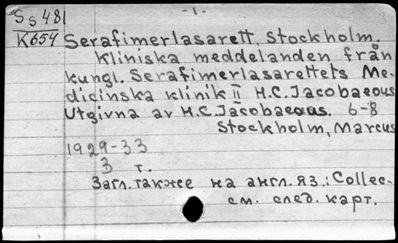 -1-
Ss 481
K654
Serafimerlasarett, Stockholm.
Kliniska meddelanden från
kungl. Serafimerlasarettets Me-
dicinska klinik II H.C. Jacobaeous
Utgivna av H.C. Jacobaeous. 6-8
Stockholm, Marcus
1929-33
3 т.
Загл. также на англ. яз.: Collec.
см. след. карт.